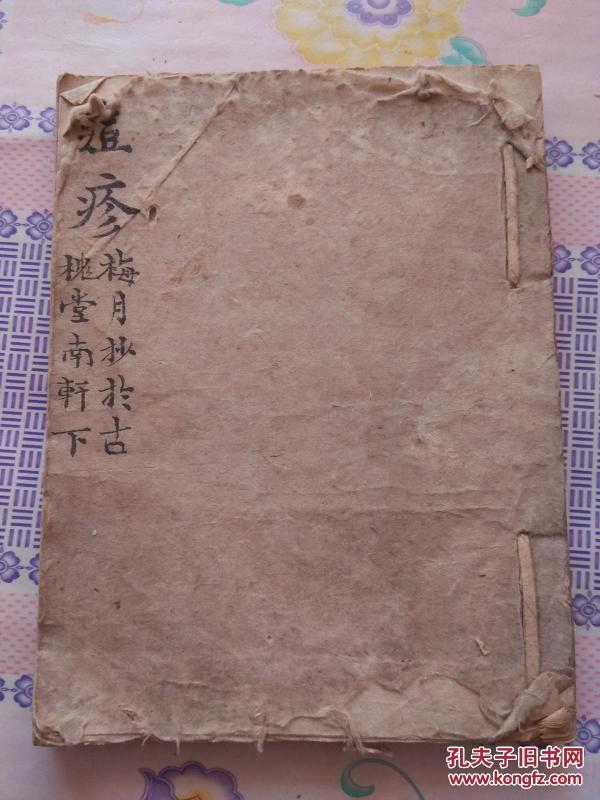 痘疹
梅月抄於古
槐堂南軒下
孔夫子旧书网
www.kongfz.com